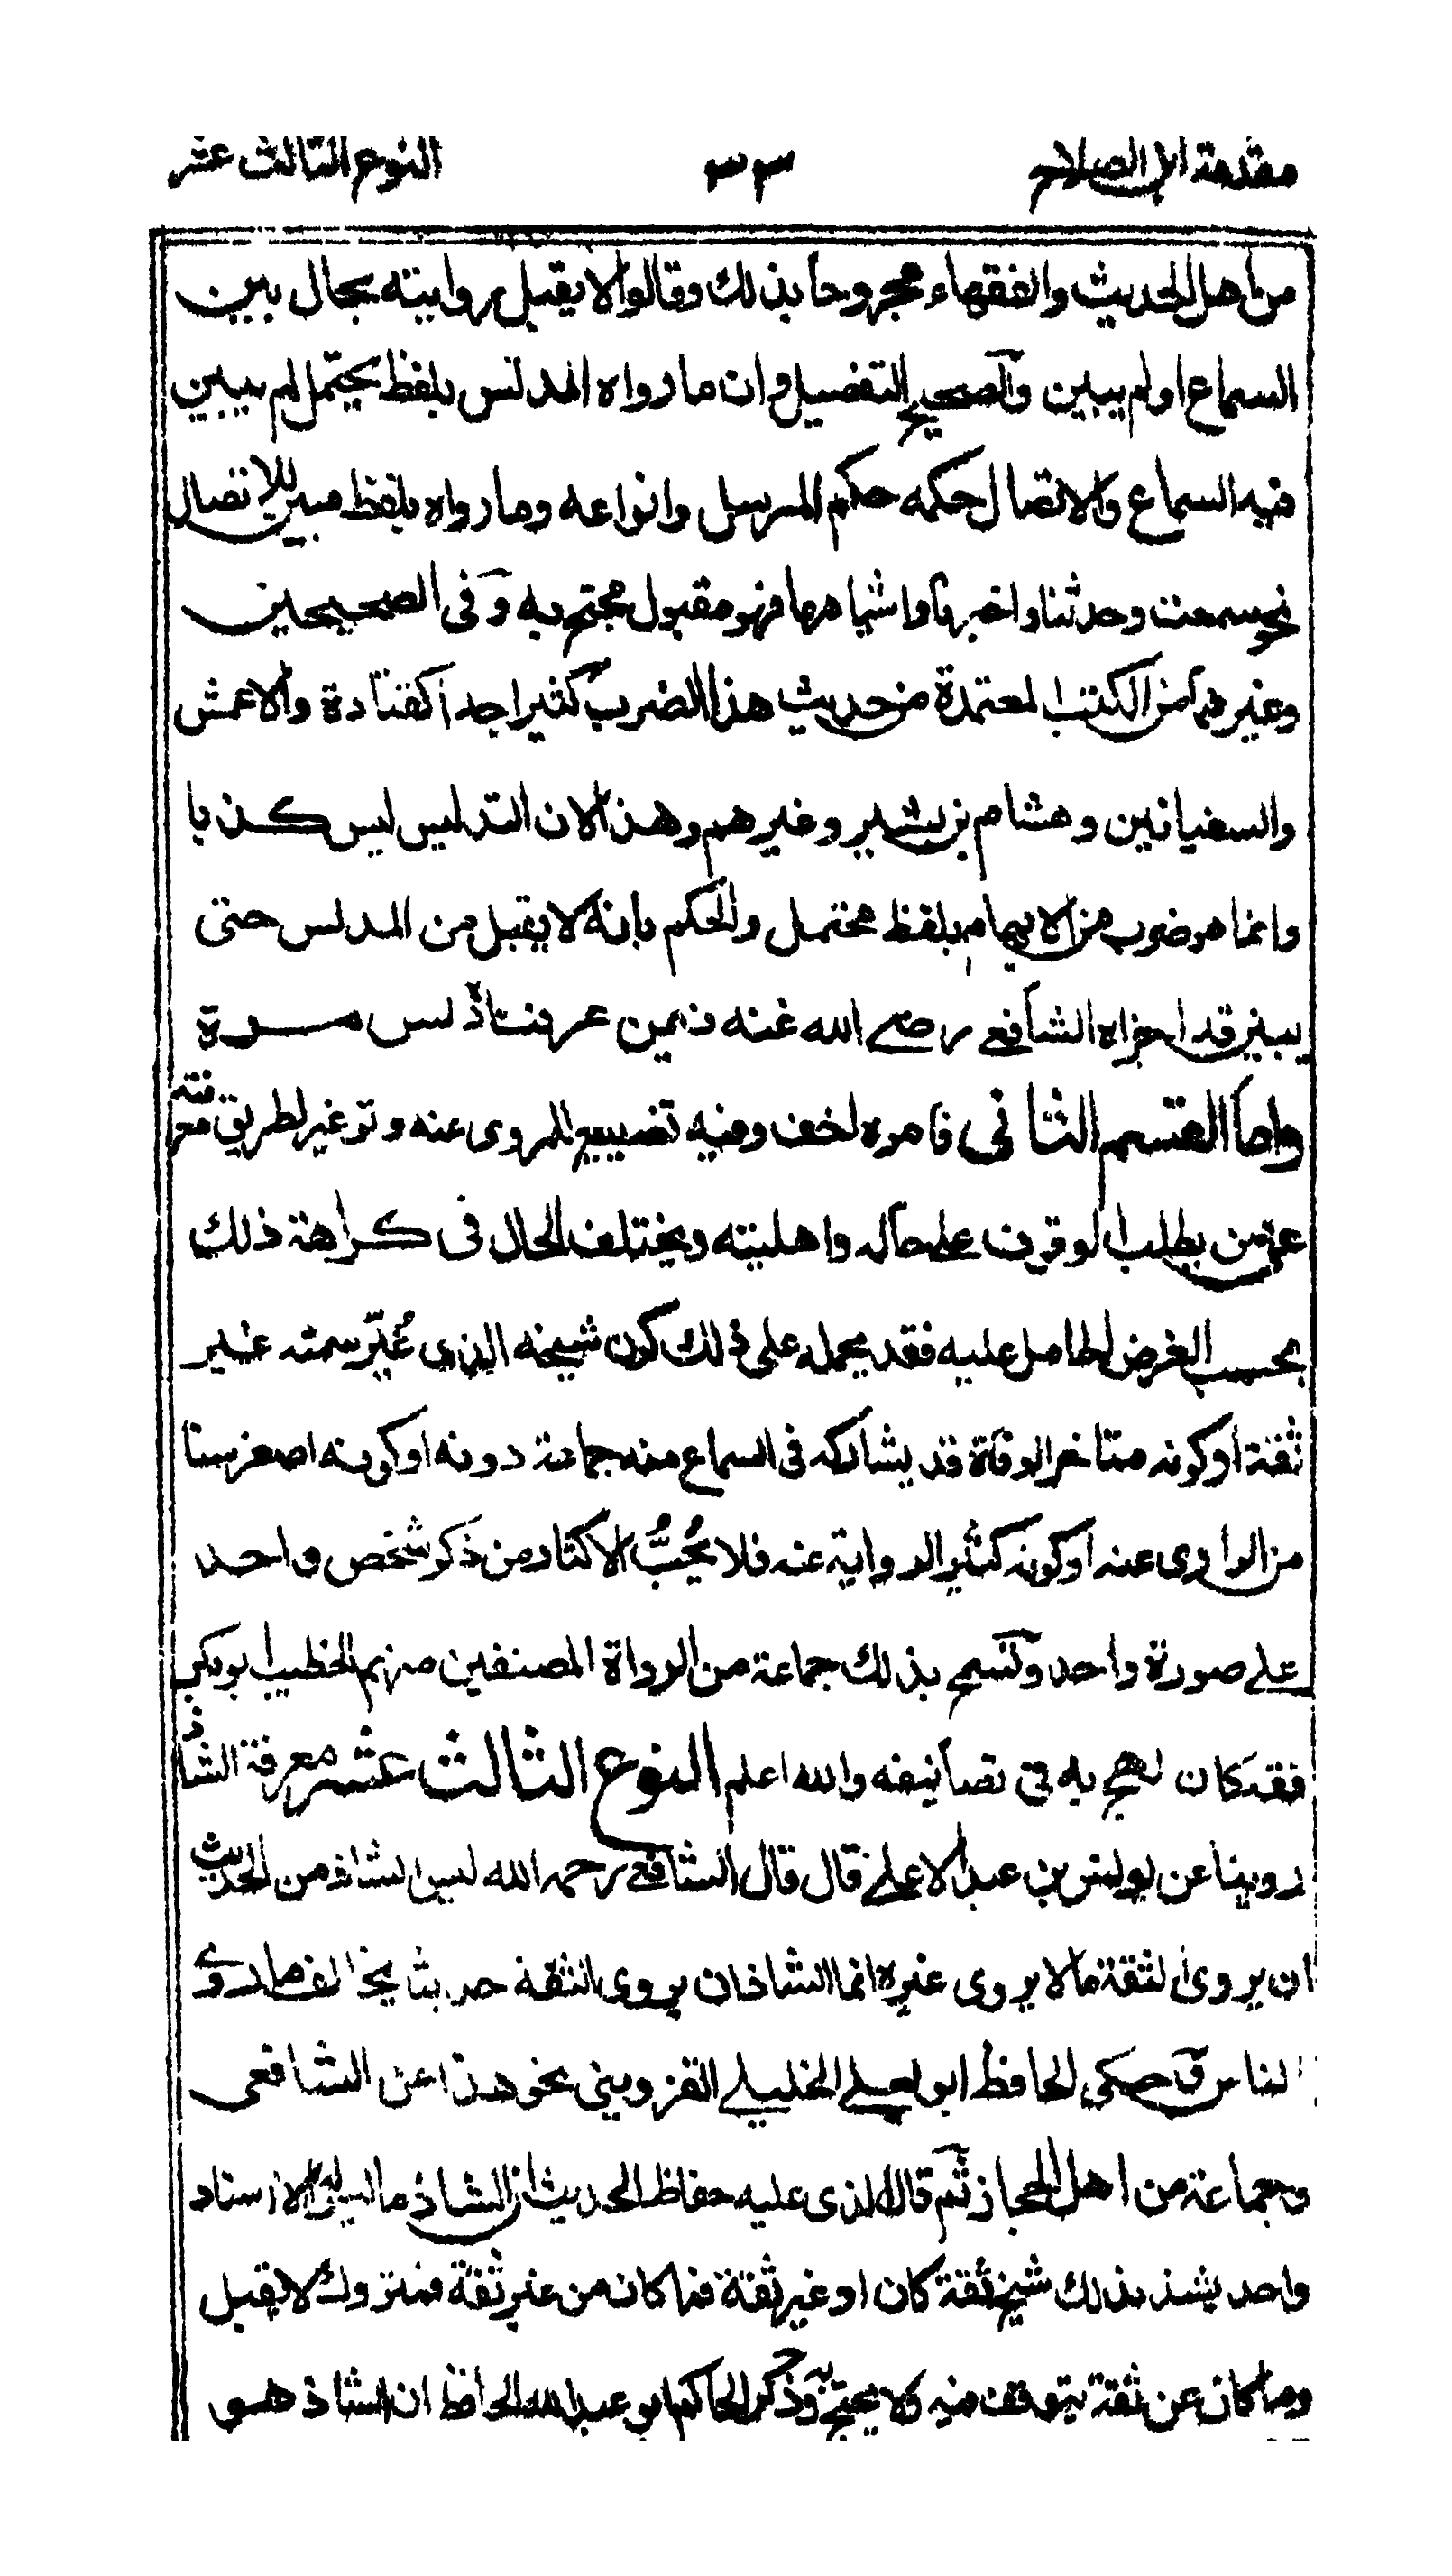 مقدمة ابن الصلاح ٣٣ النوع الثالث عشر
من اهل الحديث والفقهاء مجروحا بذلك وقالوا لا يقبل روايته بحال بين
السماع او لم يبين والصحيح التفصيل وان ما رواه المدلس بلفظ يحتمل لم يبين
فيه السماع والاتصال حكمه حكم المرسل وانواعه وما رواه بلفظ مبين للاتصال
نحو سمعت وحدثنا واخبرنا واشباهها فهو مقبول محتج به وفى الصحيحين
وغيرهما من الكتب المعتمدة من حديث هذا الضرب كثير اجدا كقتادة والاعمش
والسفيانين وهشام بن بشير وغيرهم وهذا لان التدليس ليس كذبا
وانما هو ضرب من الايهام بلفظ محتمل والحكم بانه لا يقبل من المدلس حتى
يبين قد اجراه الشافعى رضى الله عنه فيمن عرفناه دلس مرة
واما القسم الثانى فامره اخف وفيه تضييع للمروى عنه وتوعير لطريق معرفته
عمن يطلب الوقوف على حاله واهليته ويختلف الحال فى كراهة ذلك
بحسب الغرض الحامل عليه فقد يحمله على ذلك كون شيخه الذى غُيّر سمته غير
ثقة او كونه متاخر الوفاة قد يشاركه فى السماع منه جماعة دونه او كونه اصغر سنا
من الراوى عنه او كونه كثير الرواية عنه فلا يُحِبُّ الاكثار من ذكر شخص واحد
على صورة واحد وتسمح بذلك جماعة من الرواة المصنفين منهم الخطيب ابو بكر
فقد كان لهج به فى تصانيفه والله اعلم النوع الثالث عشر معرفة الشاذ
روينا عن يونس بن عبد الاعلى قال قال الشافعى رحمه الله ليس الشاذ من الحديث
ان يروى الثقة ما لا يروى غيره انما الشاذ ان يروى الثقة حديثا يخالف ما روى
الناس وحكى الحافظ ابو يعلى الخليلى القزوينى نحو هذا عن الشافعى
وجماعة من اهل الحجاز ثم قال الذى عليه حفاظ الحديث ان الشاذ ما ليس له الا اسناد
واحد يشذ بذلك شيخ ثقة كان او غير ثقة فما كان من غير ثقة فمتروك لا يقبل
وما كان عن ثقة يتوقف فيه ولا يحتج به وذكر الحاكم ابو عبد الله الحافظ ان الشاذ هو